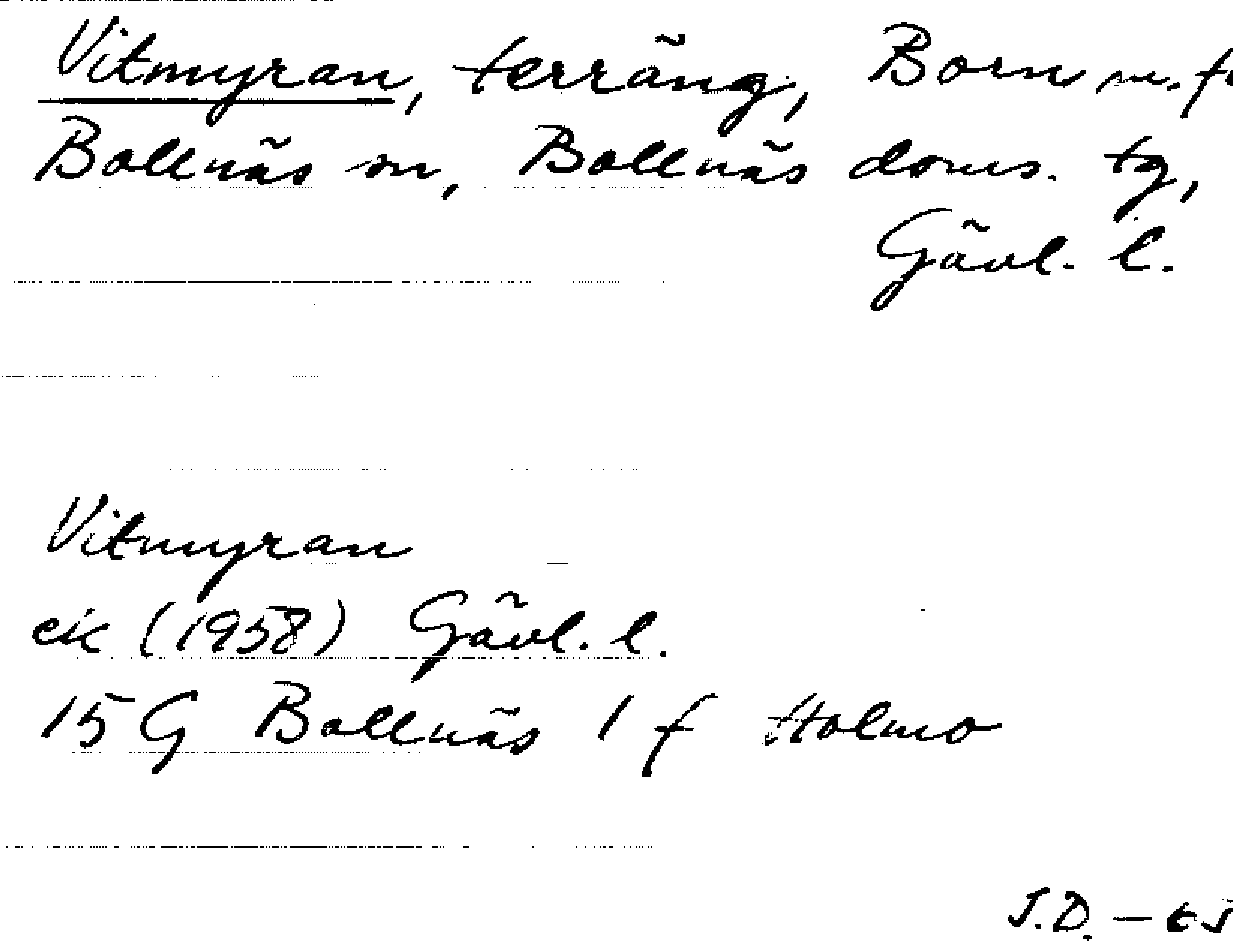 Vitmyran, terräng, Born m. fl
Bollnäs sn, Bollnäs doms. tg,
Gävl. l.
Vitmyran
eik (1958) Gävl. l.
15 G Bollnäs 1 f Holmo
J.D. – 65